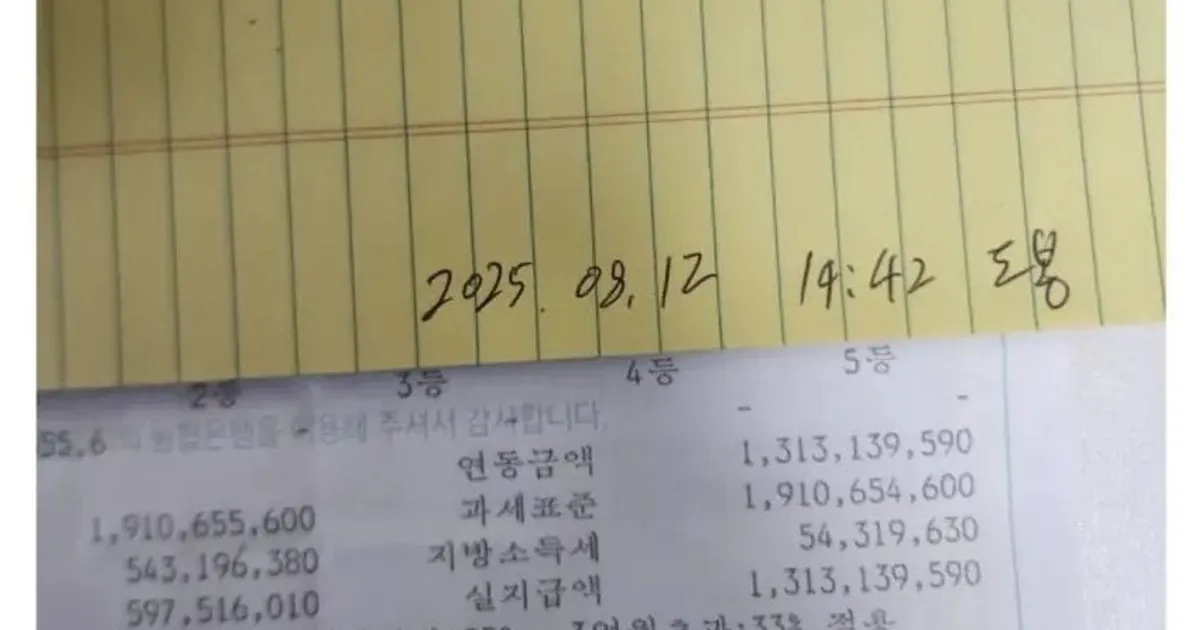 2025. 08. 12 14:42 도봉
2등 3등 4등 5등
55.6 농협은행을 이용해 주셔서 감사합니다.
- -
연동금액 1,313,139,590
1,910,655,600 과세표준 1,910,654,600
543,196,380 지방소득세 54,319,630
597,516,010 실지급액 1,313,139,590
3억원초과:33% 적용